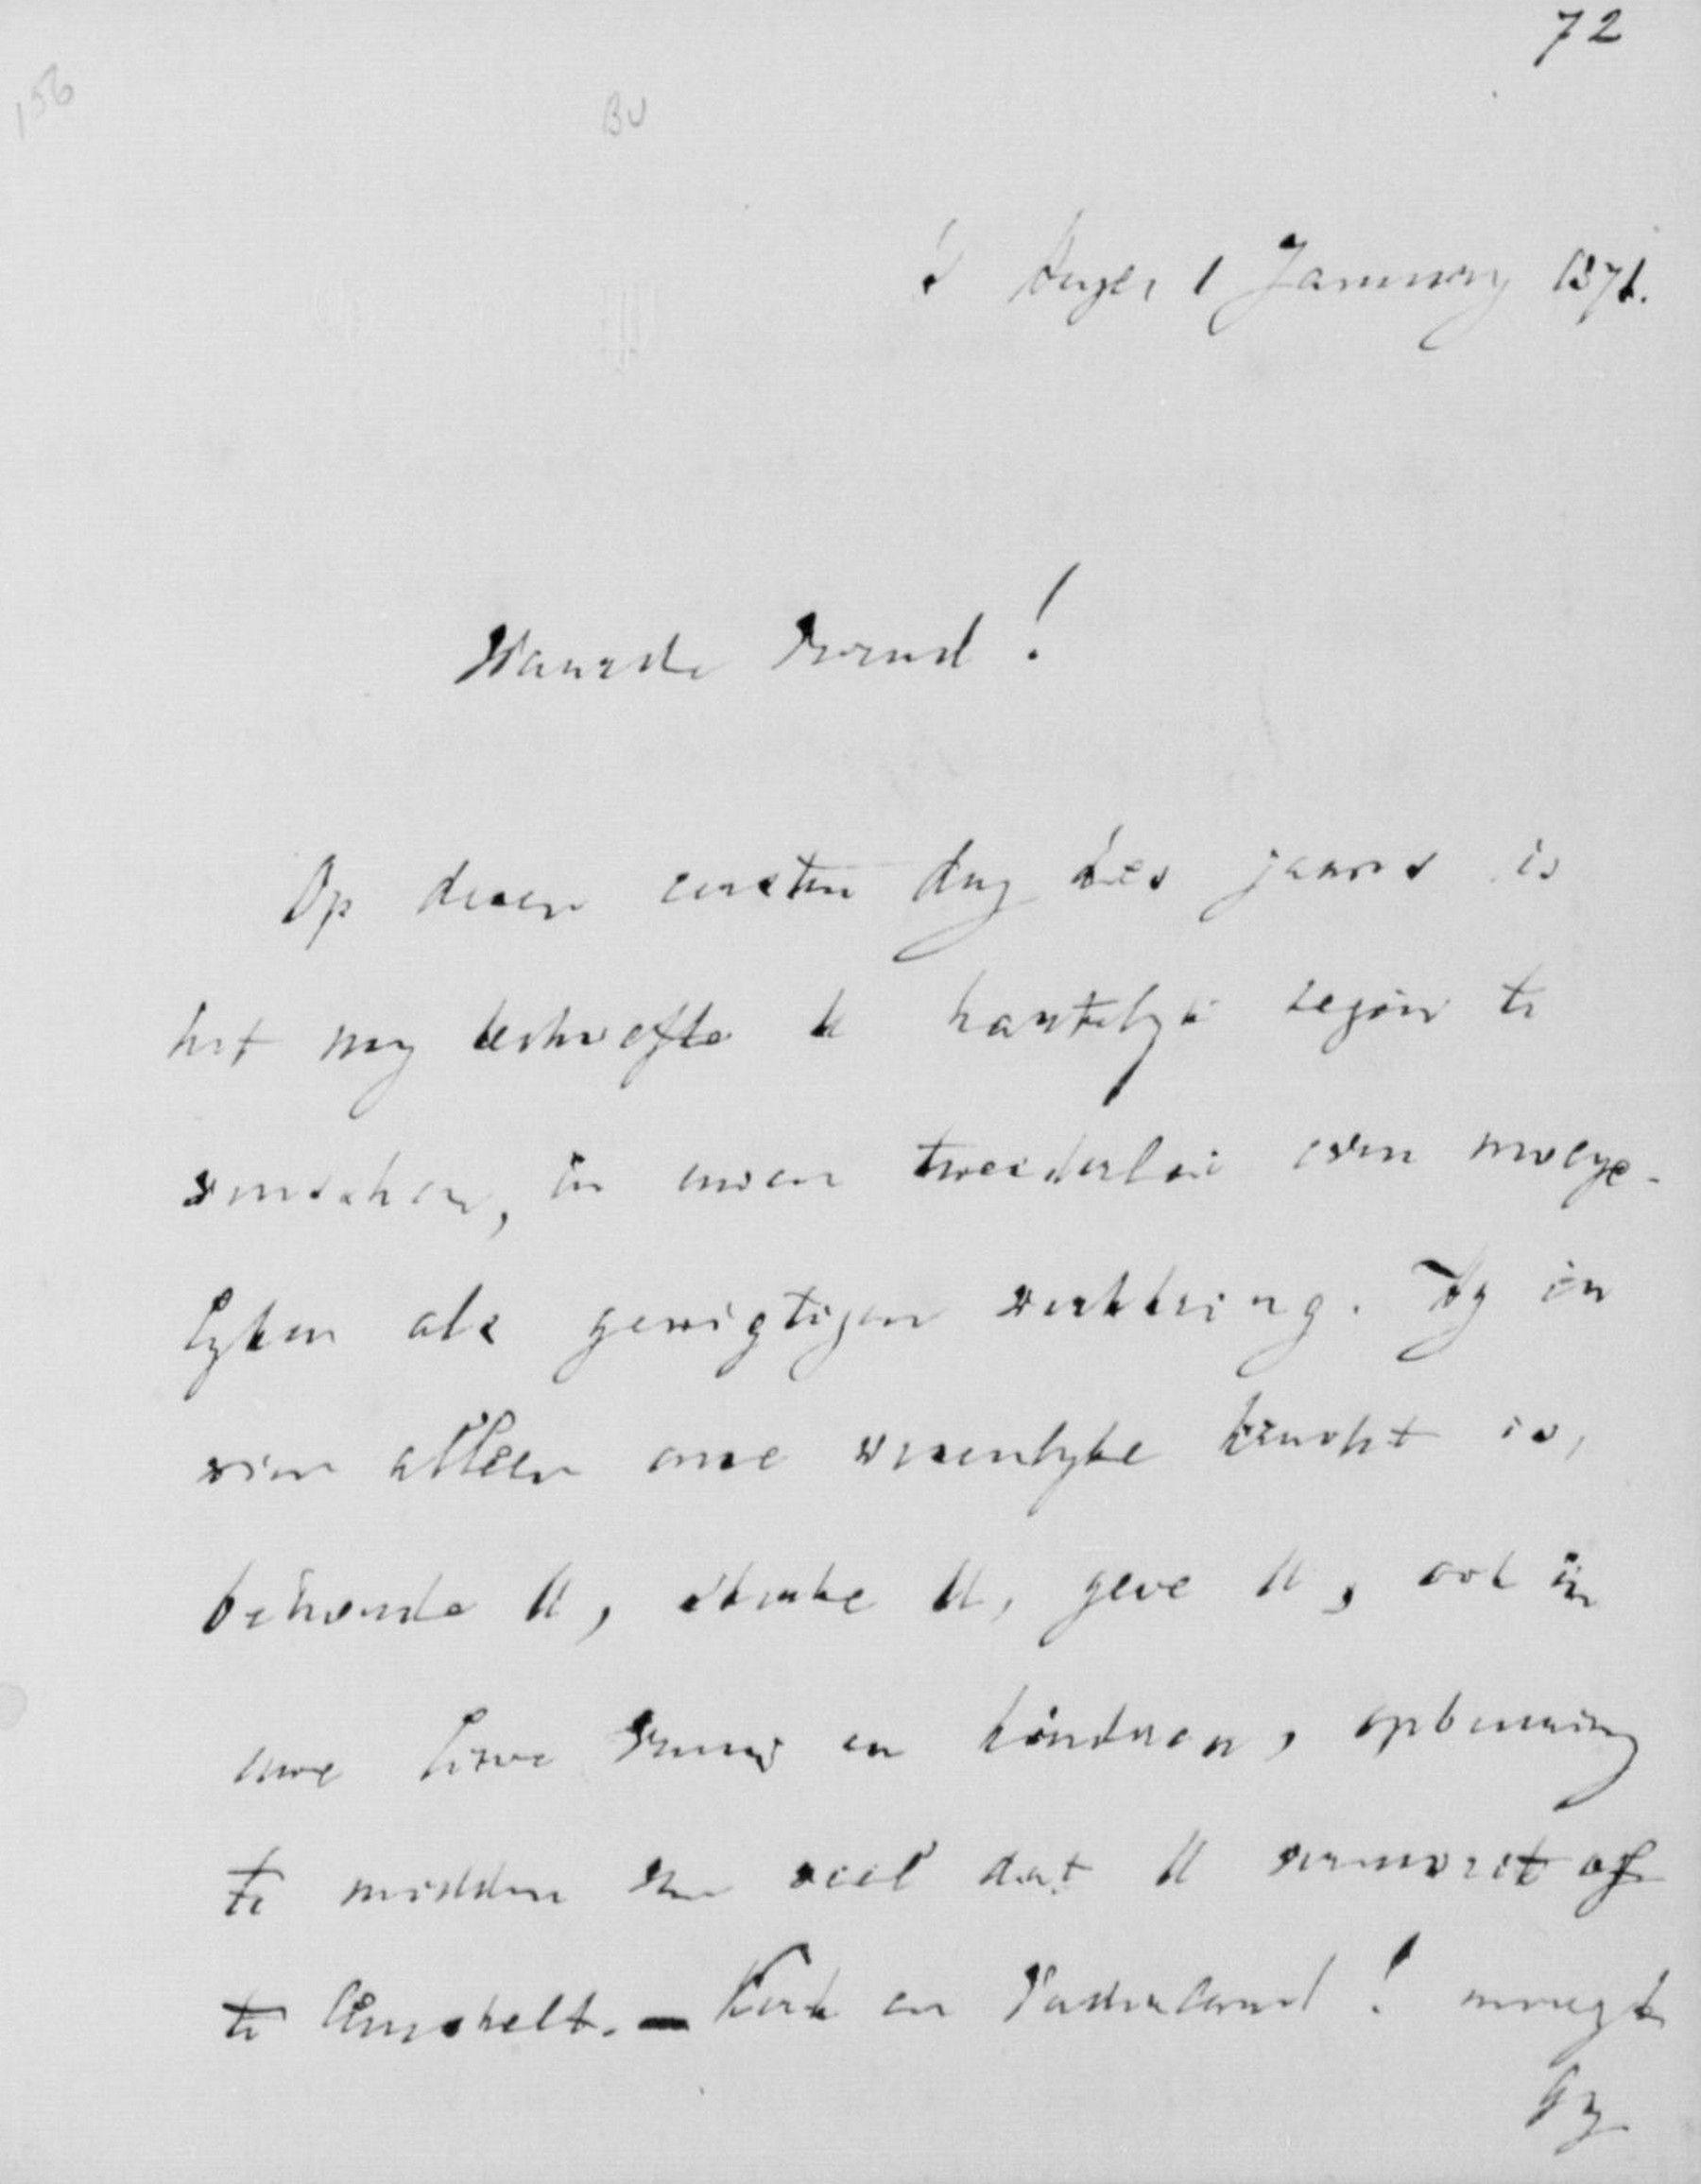 72
156
BU
's Hage, 1 January 1871.
Waarde Vriend!
Op dezen eersten dag des jaars is
het my behoefte U hartelyk zegen te
wenschen, in uwen tweederlei even moeye-
lyken als gewigtigen werkkring. Hy in
wien alleen onze wezenlyke kracht is,
behoude U, sterke U, geve U, ook in
uwe lieve vrouw en kinderen, opbeuring
te midden van veel dat U vermoeit of
te leurstelt. — Kerk en Vaderland! moogt
Gy